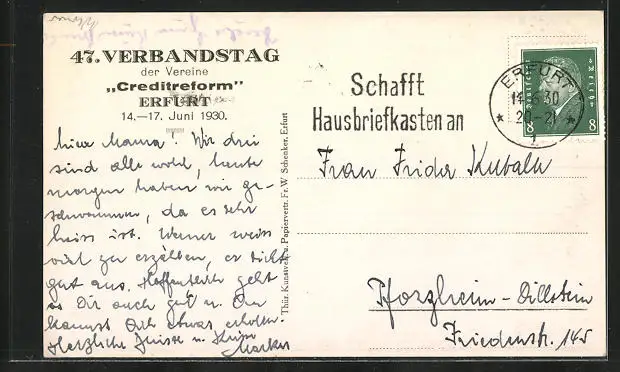 47. VERBANDSTAG
der Vereine
„Creditreform"
ERFURT
14.—17. Juni 1930.
Liebe Mama! Wir drei
sind alle wohl, heute
morgen haben wir ge-
schwommen, da es sehr
heiss ist. Werner weiss
viel zu erzählen, er sieht
gut aus. Hoffentlich geht
es Dir auch gut u. Du
kannst Dich etwas erholen.
Herzliche Grüsse u. Küsse
Thür. Kunstverl. u. Papiervertr. Fr. W. Schenker, Erfurt
Schafft
Hausbriefkasten an
ERFURT
14.6.30
20-21
1
Deutsches Reich
8 8
Frau Frida Kubale
Pforzheim-Dillstein
Friedenstr. 145